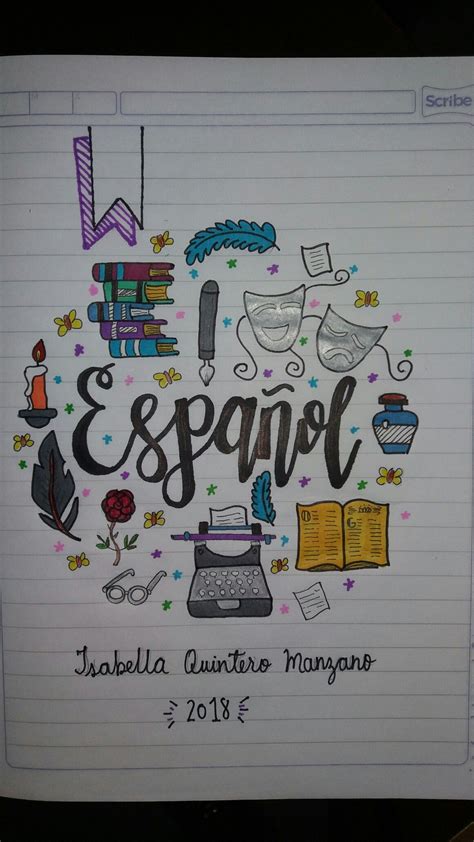 Scribe
Español
Isabella Quintero Manzano
2018